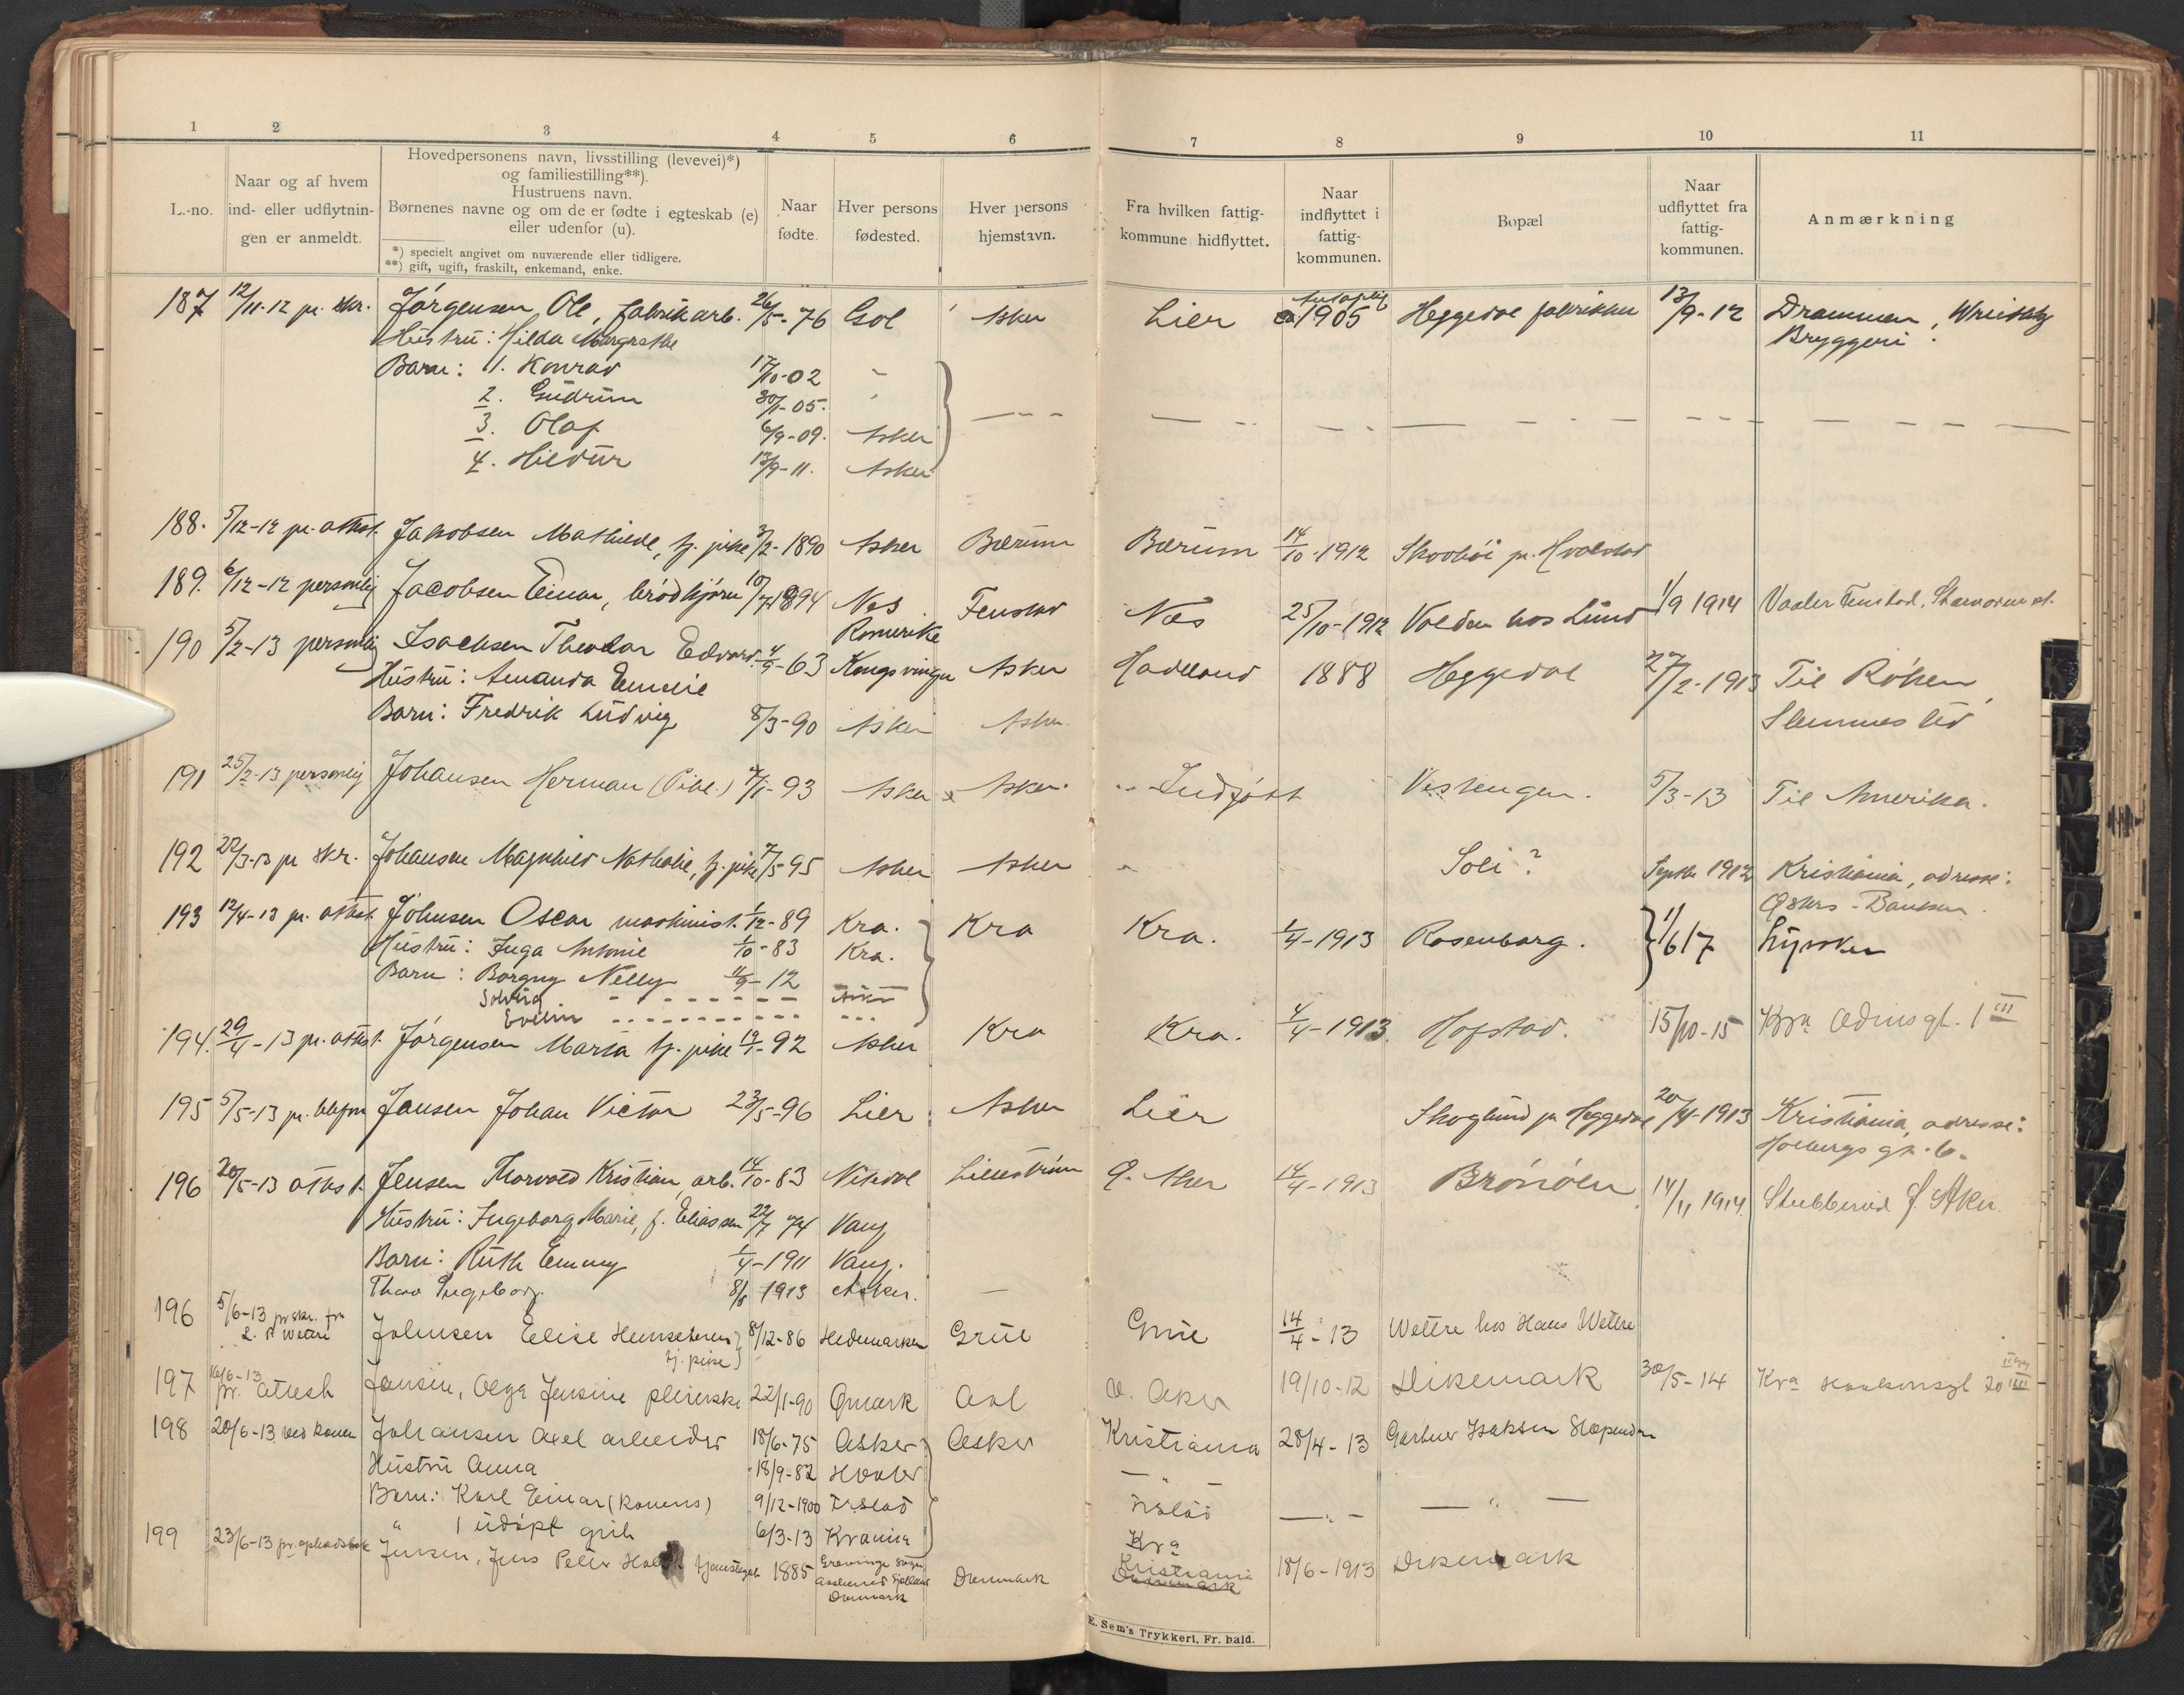 1 2 3 4 5 6 7 8 9 10 11
L.-no.
Naar og af hvem
ind- eller udflytnin-
gen er anmeldt.
Hovedpersonens navn, livsstilling (levevei)*)
og familiestilling**).
Hustruens navn.
Børnenes navne og om de er fødte i egteskab (e)
eller udenfor (u).
*) specielt angivet om nuværende eller tidligere.
**) gift, ugift, fraskilt, enkemand, enke.
Naar
fødte.
Hver persons
fødested.
Hver persons
hjemstavn.
Fra hvilken fattig-
kommune hidflyttet.
Naar
indflyttet i
fattig-
kommunen.
Bopæl
Naar
udflyttet fra
fattig-
kommunen.
Anmærkning
187 12/11-12 pr. skr. Jørgensen Ole, fabrikarb. 26/5-76 Gol Asker Lier 1905 Heggedal fabrikker 13/9-12 Drammen,
Hustru: Hilda Margrethe Bryggeri.
Barn: 1. Konrad 17/10-02 "
2. Gudrun 30/1-05. "
3. Olaf 6/9-09. Asker
4. Hildur 13/9-11. Asker
188. 5/12-12 pr. attest. Jakobsen Mathilde, tj. pike 3/2-1890 Asker Bærum Bærum 14/10-1912 Skovhøi pr. Hvalstad
189. 6/12-12 personlig Jacobsen Einar, brødkjører 10/7 1894 Nes Romerike Fenstad Nes 25/10-1912 Volden hos Lund 1/9 1914 Vaaler Fenstad,
190 5/2-13 personlig Isachsen Theodor Edvard 4/9-63 Kongsvinger Asker Hadeland 1888 Heggedal 27/2-1913 Til Røken,
Hustru: Amanda Emelie Slemmestad
Barn: Fredrik Ludvig 8/3-90 Asker Asker
191 25/2-13 personlig Johansen Herman (Pihl.) 7/1-93 Asker Asker. Indfødt Vestengen. 5/3-13 Til Amerika.
192 22/3-13 pr skr. Johansen Magnhild Nathalie, tj. pike 7/5-95 Asker Asker " Soli? Septbr 1912 Kristiania, adresse:
193 12/4-13 pr. attest. Johnsen Oscar maskinist. 1/12-89 Kra. Kra Kra. 1/4-1913 Rosenborg. 1/6 17 Lysaker
Hustru: Inga Antonie 1/10-83 Kra.
Barn: Borgny Nelly 11/9-12
Solveig - - - - - - - Asker
Evelin - - - - - - - - - -
194. 29/4-13 pr. attest. Jørgensen Marta tj. pike 19/1-92 Asker Kra Kra. 4/4-1913. Hofstad. 15/10-15 Kra Odinsgt. 1 III
195 5/5-13 pr. Jansen Johan Victor 23/5-96 Lier Asker Lier Skoglund pr Heggedal 20/4-1913 Kristiania, adresse:
Holbergs gt. 6.
196 20/5-13 attest. Jensen Thorvald Kristian, arb. 14/10-83 Nitedal Lillestrøm Ø. Aker 14/4-1913 Brønøen 14/11 1914 Stubberud Ø. Aker.
Hustru: Ingeborg Marie, f. Eliassen 22/7 74 Vang
Barn: Ruth Emmy 1/4-1911 Vang.
Thora Ingeborg. 8/8 1913 Asker. —
196 5/6-13 pr skr. fra Johnsen Elise Henseteren 8/12-86 Hedemarken Grue Grue 14/4-13 Wettre hos Hans Wettre
Wettre tj. pike)
197 16/6-13 pr. attest Jansen, Olga Jensine pleierske 22/1-90 Ømark Aal V. Aker 19/10-12 Dikemark 30/5-14 Kra Haakonsgt 20 III
198 20/6-13 ved konen Johansen Axel arbeider 18/6-75 Asker Asker Kristiania 28/4-13 Gartner Isaksen Slæpenden
Hustru Anna 18/9-82 Hvaler — " —
Barn: Karl Einar (konens) 9/12-1900 — " —
" 1 udøpt gut 6/3-13 Krania Kra
199 23/6-13 pr. opholdsbok Jensen, Jens Peter tjenestegut 1885 Danmark Danmark Kristiania 18/6-1913 Dikemark
Danmark
E. Sem's Trykkeri, Fr. hald.